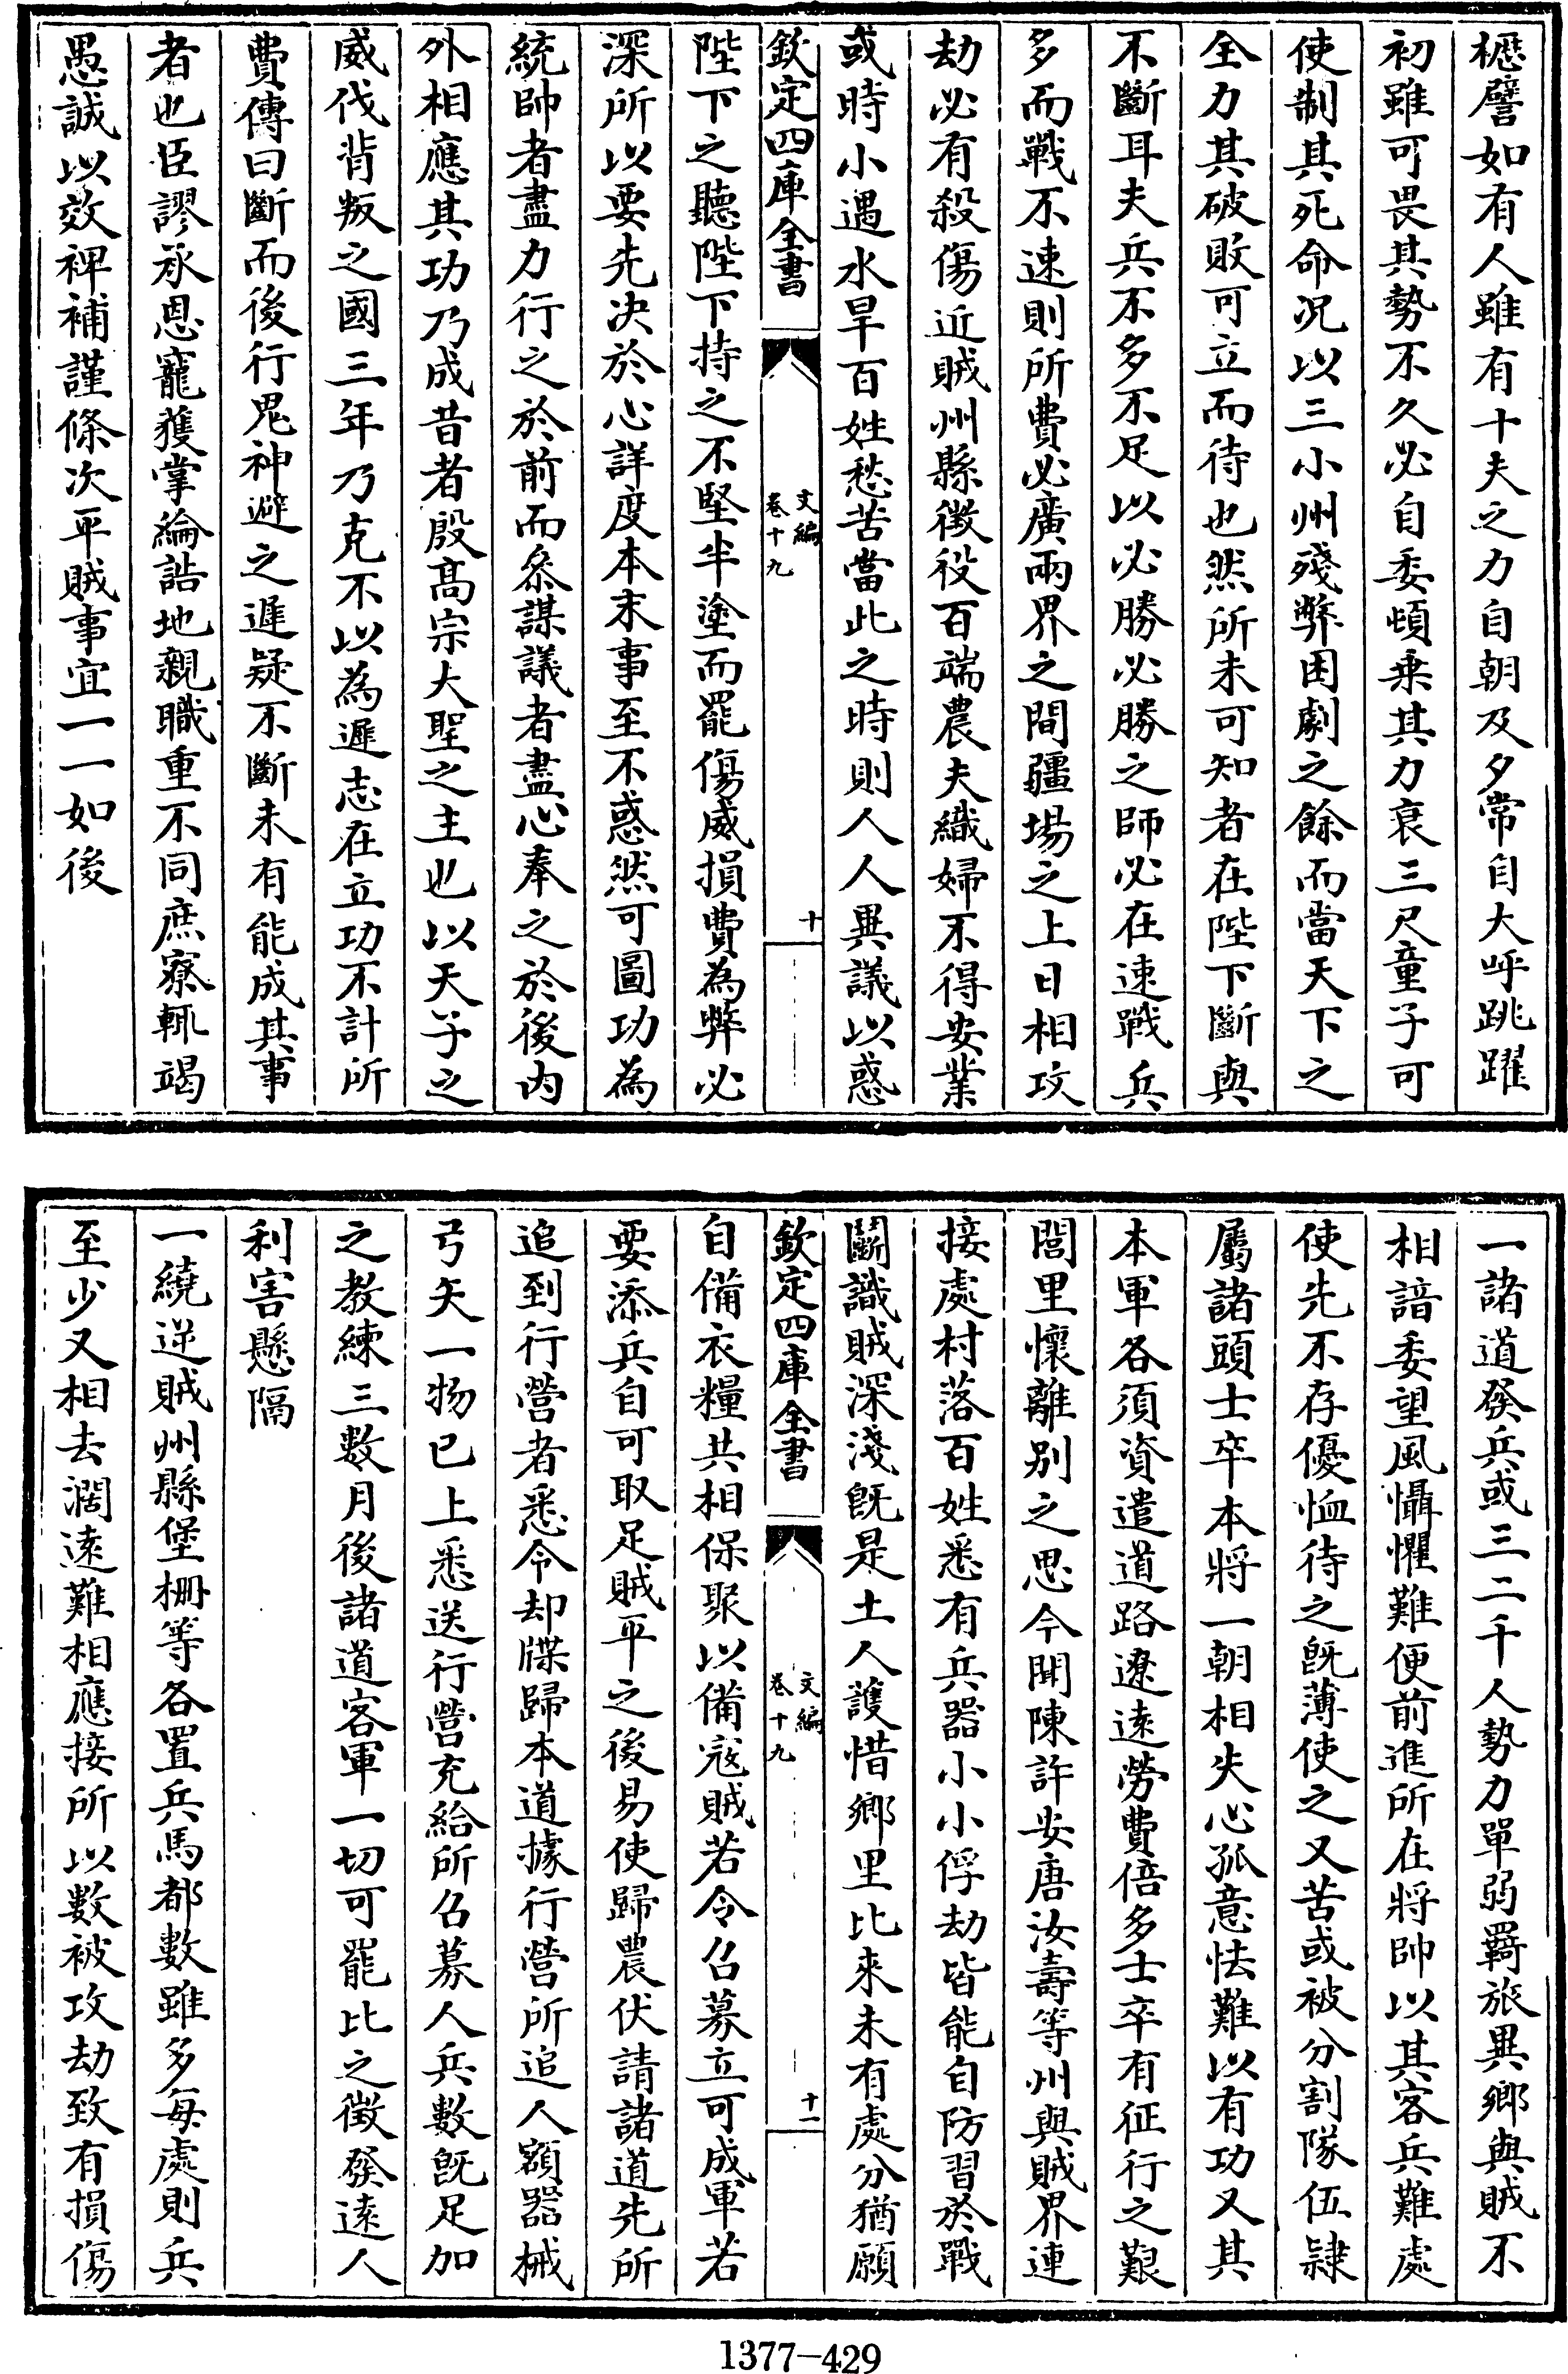 櫪譬如有人雖有十夫之力自朝及夕常自大呼跳躍
初雖可畏其勢不久必自委頓乗其力衰三尺童子可
使制其死命况以三小州殘弊困劇之餘而當天下之
全力其破敗可立而待也然所未可知者在陛下斷與
不斷耳夫兵不多不足以必勝必勝之師必在速戰兵
多而戰不速則所費必廣兩界之間疆場之上日相攻
劫必有殺傷近賊州縣徴役百端農夫織婦不得安業
或時小遇水旱百姓愁苦當此之時則人人異議以惑
欽定四庫全書
文編
卷十九
十
陛下之聽陛下持之不堅半塗而罷傷威損費為弊必
深所以要先决於心詳度本末事至不惑然可圖功為
統帥者盡力行之於前而叅謀議者盡心奉之於後内
外相應其功乃成昔者殷髙宗大聖之主也以天子之
威伐背叛之國三年乃克不以為遲志在立功不計所
費傳曰斷而後行鬼神避之遲疑不斷未有能成其事
者也臣謬承恩寵獲掌綸誥地親職重不同庶寮輒竭
愚誠以效裨補謹條次平賊事宜一一如後
一諸道發兵或三二千人勢力單弱羇旅異鄉與賊不
相諳委望風懾懼難便前進所在將帥以其客兵難處
使先不存優恤待之旣薄使之又苦或被分割隊伍隷
屬諸頭士卒本將一朝相失心孤意怯難以有功又其
本軍各須資遣道路遼逺勞費倍多士卒有征行之艱
閭里懷離别之思今聞陳許安唐汝壽等州與賊界連
接處村落百姓悉有兵器小小俘劫皆能自防習於戰
鬭識賊深淺旣是土人護惜鄉里比來未有處分猶願
欽定四庫全書
文編
卷十九
十一
自備衣糧共相保聚以備寇賊若令召募立可成軍若
要添兵自可取足賊平之後易使歸農伏請諸道先所
追到行營者悉令却牒歸本道據行營所追人額器械
弓矢一物已上悉送行營充給所召募人兵數旣足加
之教練三數月後諸道客軍一切可罷比之徴發逺人
利害懸隔
一繞逆賊州縣堡柵等各置兵馬都數雖多每處則兵
至少又相去濶逺難相應接所以數被攻劫致有損傷
1377-429